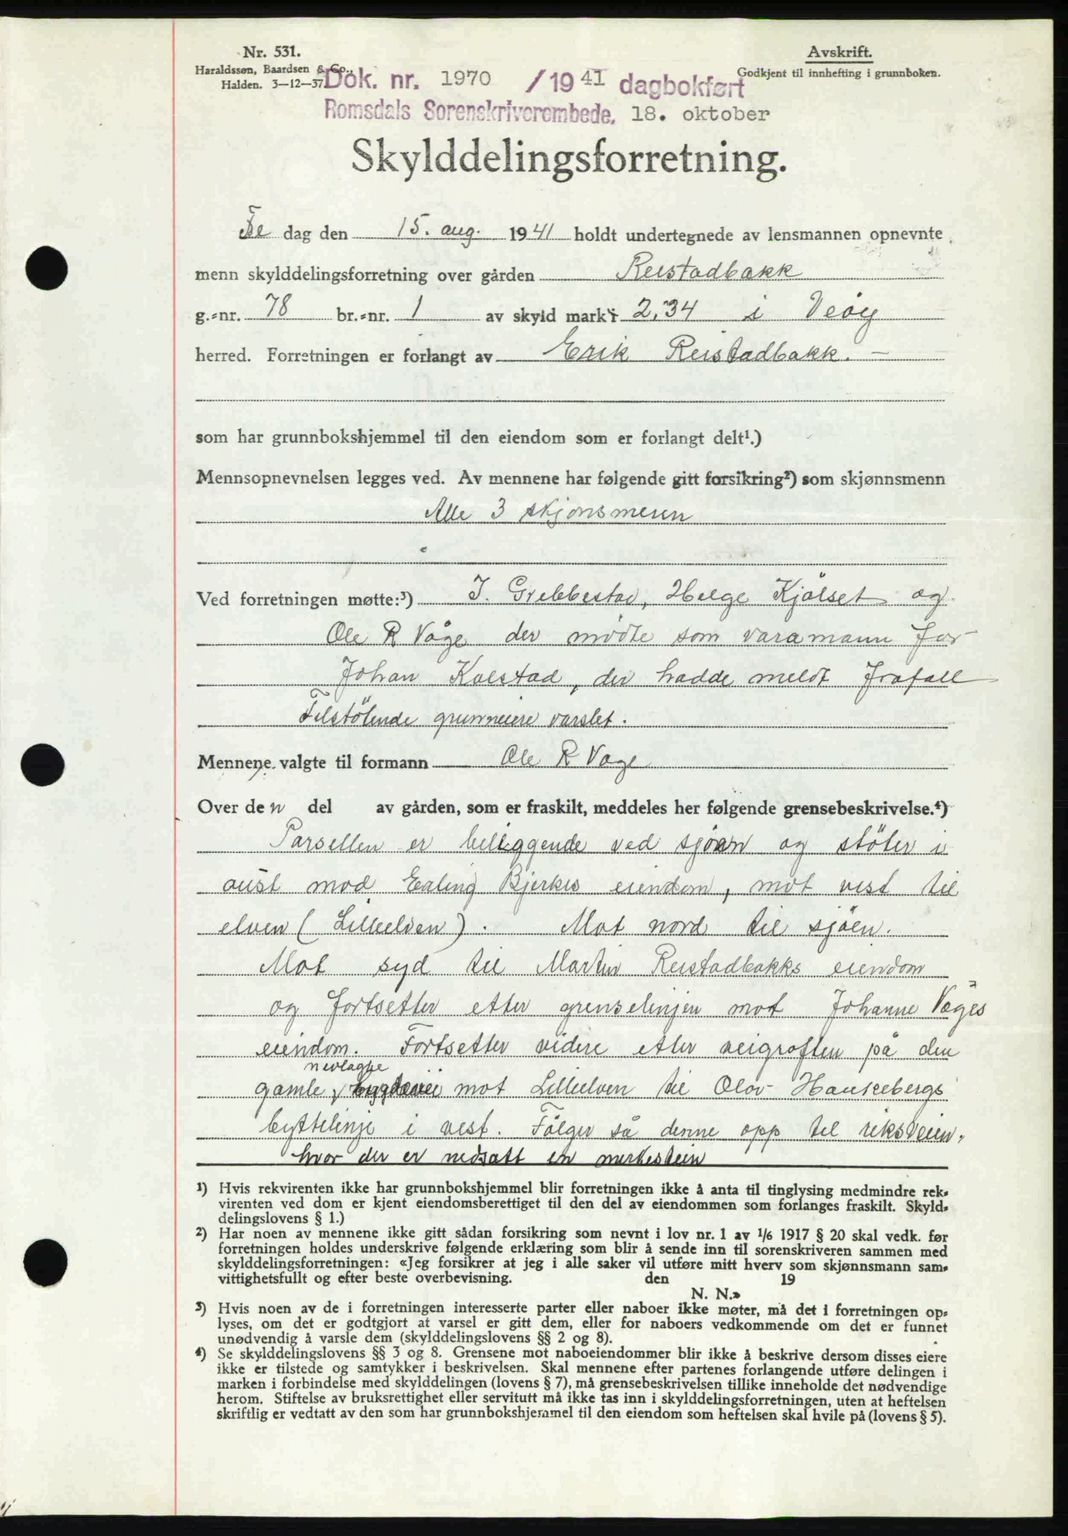 Nr. 531.
Haraldssøn, Baardsen & Co.,
Halden. 3—12—37.
Avskrift.
Godkjent til innhefting i grunnboken.
Dok. nr. 1970 /19 41 dagbokført
Romsdals Sorenskriverembede, 18. oktober
Skylddelingsforretning.
Fre dag den 15. aug. 1941 holdt undertegnede av lensmannen opnevnte
menn skylddelingsforretning over gården Reistadbakk
g.-nr. 78 br.-nr. 1 av skyld mark 2,34 i Veöy
herred. Forretningen er forlangt av Erik Reistadbakk. —
som har grunnbokshjemmel til den eiendom som er forlangt delt¹.)
Mennsopnevnelsen legges ved. Av mennene har følgende gitt forsikring²) som skjønnsmenn
Alle 3 skjönsmenn
Ved forretningen møtte:³) I. Grebbestad, Helge Kjölset og
Ole R Våge der mödte som varamann for
Johan Kolstad, der hadde meldt forfall
Tilstötende grunneiere varslet.
Mennene valgte til formann Ole R Vage
Over den del av gården, som er fraskilt, meddeles her følgende grensebeskrivelse.⁴)
Parsellen er beliggende ved sjöen og stöter i
aust mod Erling Bjerkes eiendom, mot vest til
elven (Lilleelven). Mot nord til sjöen.
Mot syd til Martin Reistadbakks eiendom
og fortsetter etter grenselinjen mot Johanne Våges
eiendom. Fortsetter videre etter veigroften på den
nedlagte
gamle, bygdevei mot Lilleelven til Olav Haukebergs
byttelinje i vest. Fölger så denne opp til riksveien,
hvor der er nedsatt en merkestein
¹) Hvis rekvirenten ikke har grunnbokshjemmel blir forretningen ikke å anta til tinglysing medmindre rek-
virenten ved dom er kjent eiendomsberettiget til den del av eiendommen som forlanges fraskilt. Skyld-
delingslovens § 1.)
²) Har noen av mennene ikke gitt sådan forsikring som nevnt i lov nr. 1 av 1/6 1917 § 20 skal vedk. før
forretningen holdes underskrive følgende erklæring som blir å sende inn til sorenskriveren sammen med
skylddelingsforretningen: «Jeg forsikrer at jeg i alle saker vil utføre mitt hverv som skjønnsmann sam-
vittighetsfullt og efter beste overbevisning. den 19
N. N.»
³) Hvis noen av de i forretningen interesserte parter eller naboer ikke møter, må det i forretningen op-
lyses, om det er godtgjort at varsel er gitt dem, eller for naboers vedkommende om det er funnet
unødvendig å varsle dem (skylddelingslovens §§ 2 og 8).
⁴) Se skylddelingslovens §§ 3 og 8. Grensene mot naboeiendommer blir ikke å beskrive dersom disses eiere
ikke er tilstede og samtykker i beskrivelsen. Skal mennene efter partenes forlangende utføre delingen i
marken i forbindelse med skylddelingen (lovens § 7), må grensebeskrivelsen tillike inneholde det nødvendige
herom. Stiftelse av bruksrettighet eller servitutt må ikke tas inn i skylddelingsforretningen, uten at heftelsen
skriftlig er vedtatt av den som har grunnbokshjemmel til den eiendom som heftelsen skal hvile på (lovens § 5).